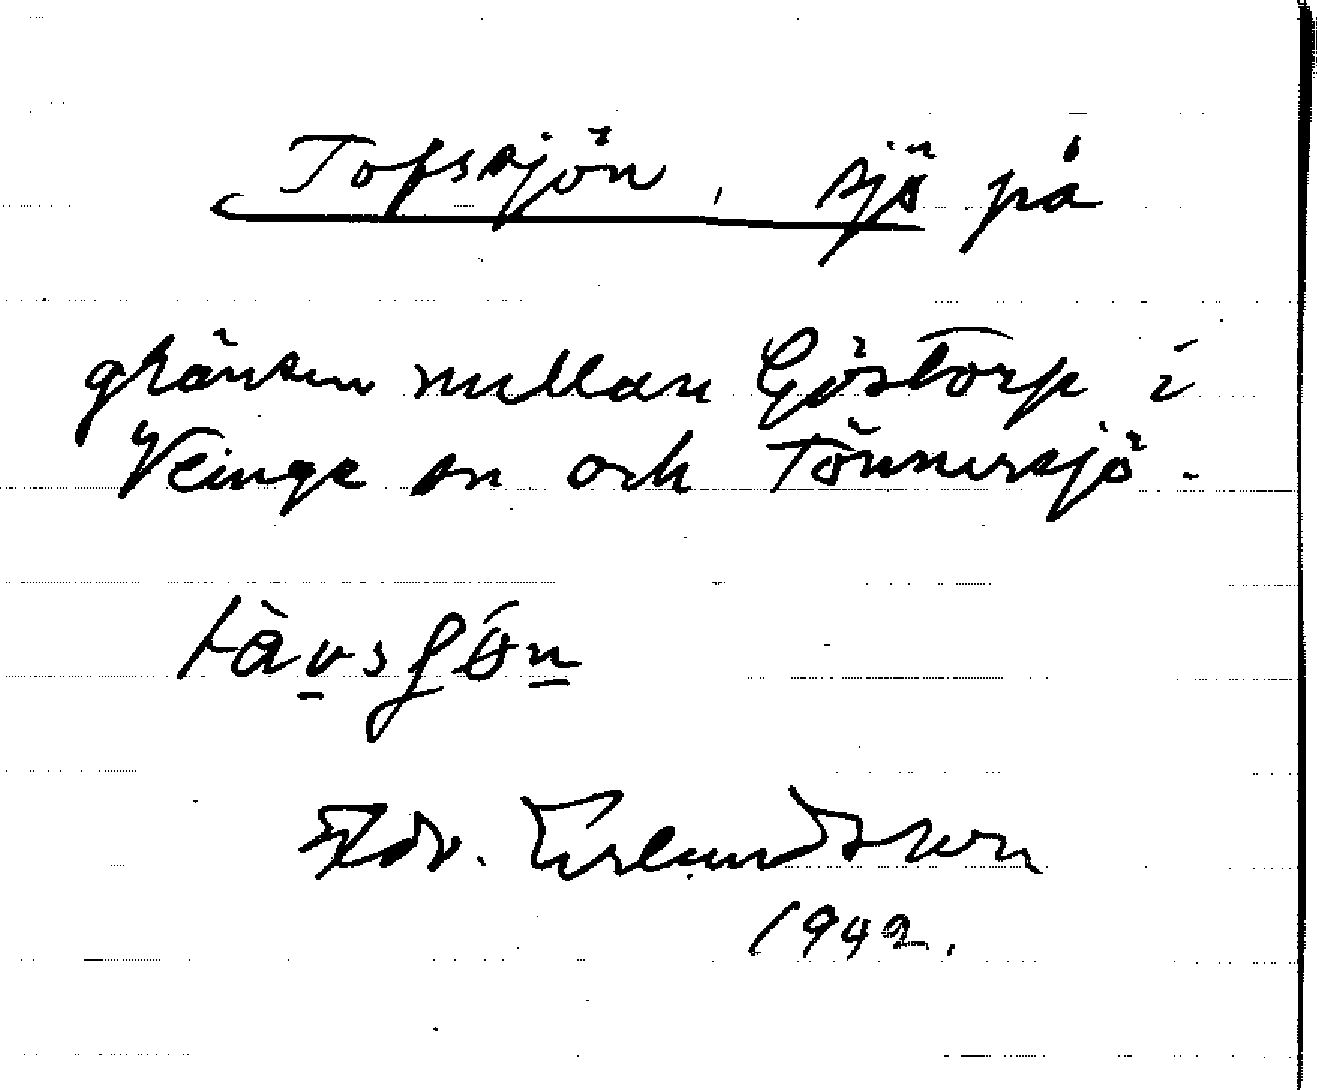 Tofssjön, sjö på
gränsen mellan Göstorp i
Veinge sn och Tönnersjö.
tàvsʃön
Edv. Erlandsson
1942.